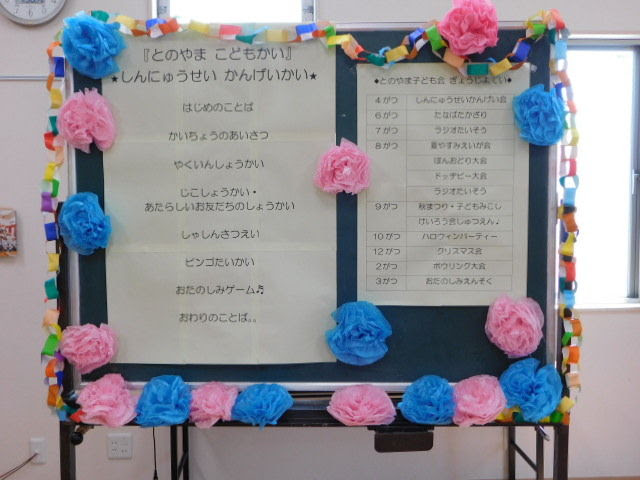 『とのやま こどもかい』
★しんにゅうせい かんげいかい★
はじめのことば
かいちょうのあいさつ
やくいんしょうかい
じこしょうかい・
あたらしいお友だちのしょうかい
しゃしんさつえい
ビンゴたいかい
おたのしみゲーム♬
おわりのことば。。
◆とのやま子ども会 ぎょうじよてい◆
4がつ しんにゅうせいかんげい会
6がつ たなばたかざり
7がつ ラジオたいそう
8がつ 夏やすみえいが会
ぼんおどり大会
ドッヂビー大会
ラジオたいそう
9がつ 秋まつり・子どもみこし
けいろう会しゅつえん♪
10がつ ハロウィンパーティー
12がつ クリスマス会
2がつ ボウリング大会
3がつ おたのしみえんそく